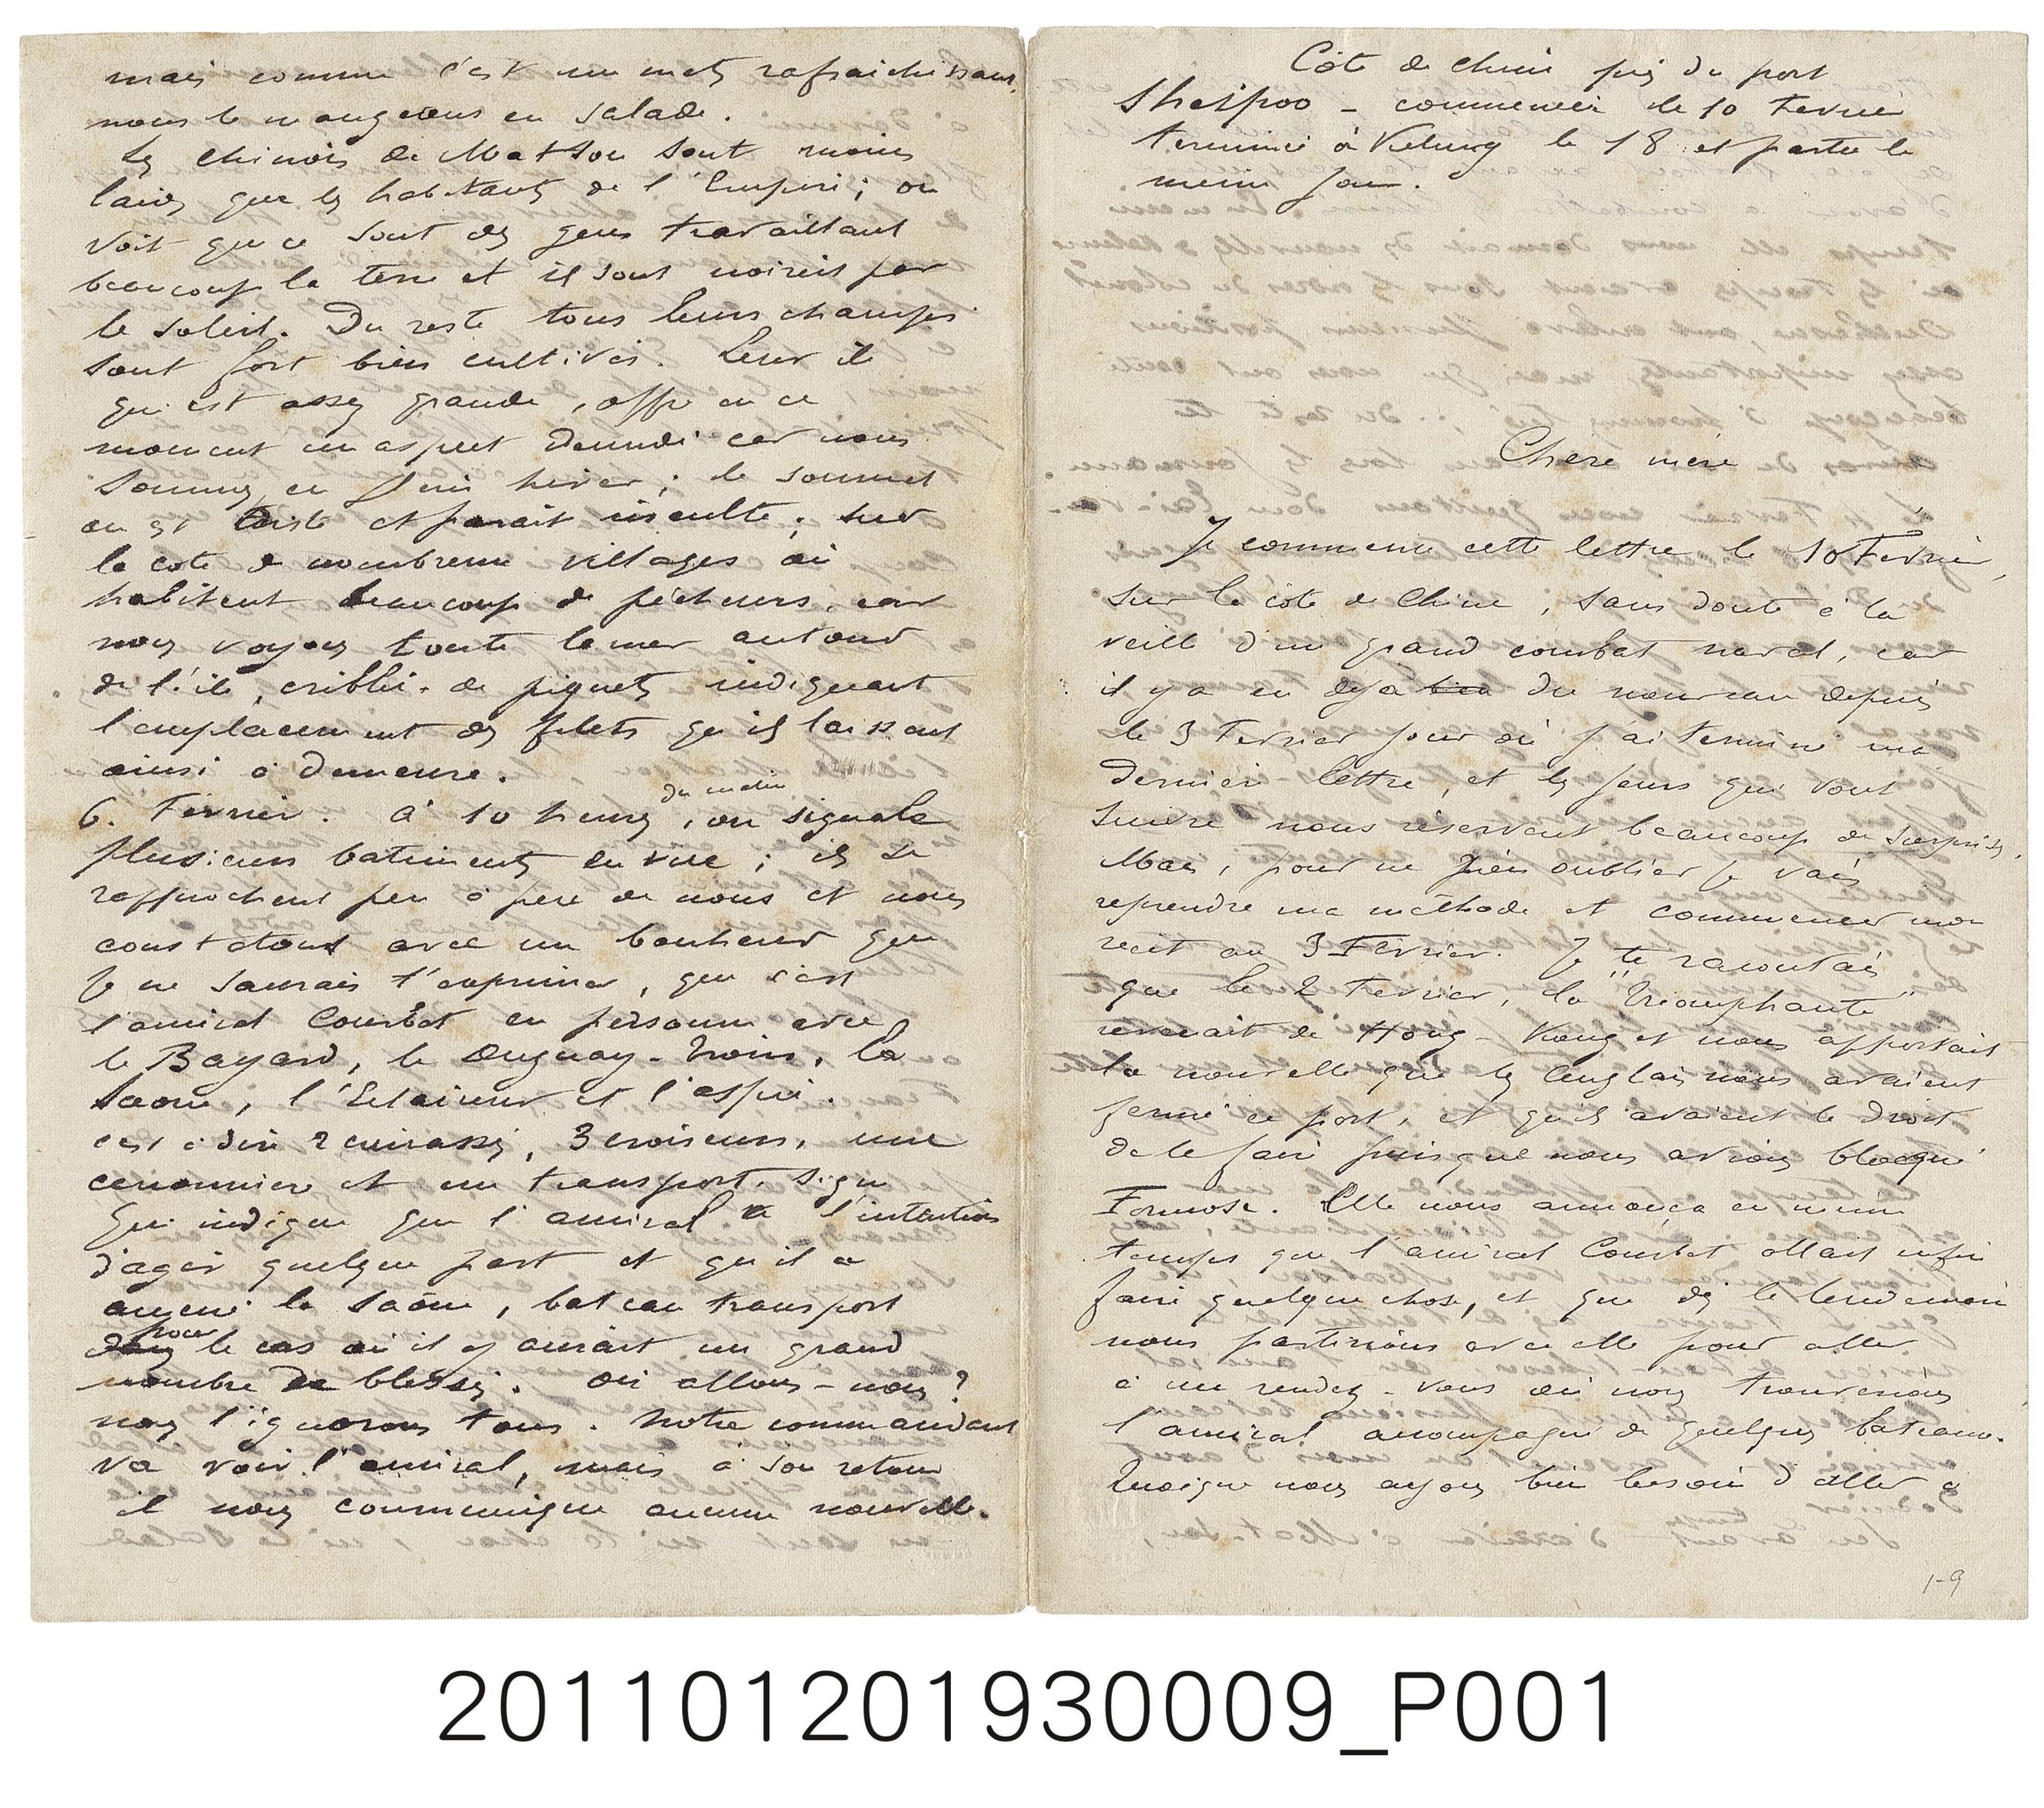 Côte de Chine près du port
Sheipoo - commencée le 10 Fevrier
terminée à Kelung le 18 et partie le
même jour.
Chère mère
Je commence cette lettre le 10 Fevrier,
sur la côte de Chine, sans doute à la
veille d'un grand combat naval, car
il y a eu deja du nouveau depuis
le 3 Fevrier jour où j'ai terminé ma
dernière lettre, et les jours qui vont
suivre nous réservent beaucoup de surprises.
Mais, pour ne rien oublier je vais
reprendre ma méthode et commencer mon
récit au 3 Février. Je te racontais
que le 2 Fevrier, la "Triomphante"
revenait de Hong-Kong et nous apportait
la nouvelle que les Anglais nous avaient
fermé ce port, et qu'ils avaient le droit
de le faire puisque nous avions bloqué
Formose. Elle nous annonça en même
temps que l'amiral Courbet allait enfin
faire quelque chose, et que dès le lendemain
nous partirions avec elle pour aller
à un rendez-vous où nous trouverions
l'amiral accompagné de quelques bateaux.
Quoique nous ayons bien besoin d'aller à
1-9
mais comme c'est un mets rafraichissant,
nous le mangerons en salade.
Les chinois de Matsou sont moins
laids que les habitants de l'Empire; on
voit que ce sont des gens travaillant
beaucoup la terre et ils sont noircis par
le soleil. Du reste tous leurs champs
sont fort bien cultivés. Leur île
qui est assez grande, offre en ce
moment un aspect dénudé car nous
sommes en plein hiver; le sommet
en est triste et parait inculte; sur
la cote de nombreux villages où
habitent beaucoup de pêcheurs, car
nous voyons toute la mer autour
de l'île, criblée de piquets indiquant
l'emplacement des filets qu'ils laissent
ainsi à demeure.
6. Fevrier. à 10 heures du matin, on signale
plusieurs batiments en vue; ils se
rapprochent peu à peu de nous et nous
constatons avec un bonheur que
je ne saurais t'exprimer, que c'est
l'amiral Courbet en personne avec
le Bayard, le Duguay-Trouin, la
Saone, l'Eclaireur et l'aspic.
c'est à dire 2 cuirassés, 3 croiseurs, une
canonnière et un transport. signe
qui indique que l'amiral a l'intention
d'agir quelque part et qu'il a
amené la Saône, bateau transport
pour le cas où il y aurait un grand
nombre de blessés. Où allons-nous?
nous l'ignorons tous. Notre commandant
va voir l'amiral, mais à son retour
il nous communique aucune nouvelle.
201101201930009_P001